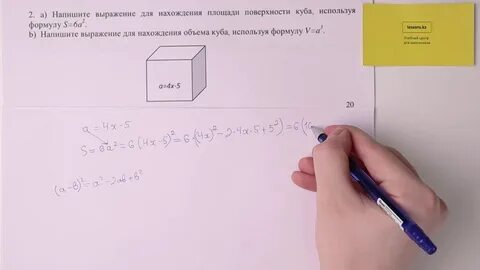 2. a) Напишите выражение для нахождения площади поверхности куба, используя
формулу S=6a².
b) Напишите выражение для нахождения объема куба, используя формулу V=a³.
a=4x-5
20
a = 4x-5
S = 6a² = 6(4x-5)² = 6·(4x)² - 2·4x·5 + 5²) = 6(1
(a-b)² = a² - 2ab + b²